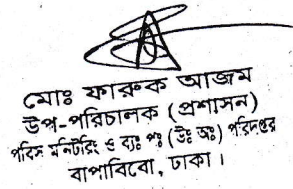 মোঃ ফারুক আজম
উপ-পরিচালক (প্রশাসন)
পবিস মনিটরিং ও ব্যঃ পঃ (উঃ অঃ) পরিদপ্তর
বাপবিবো, ঢাকা।